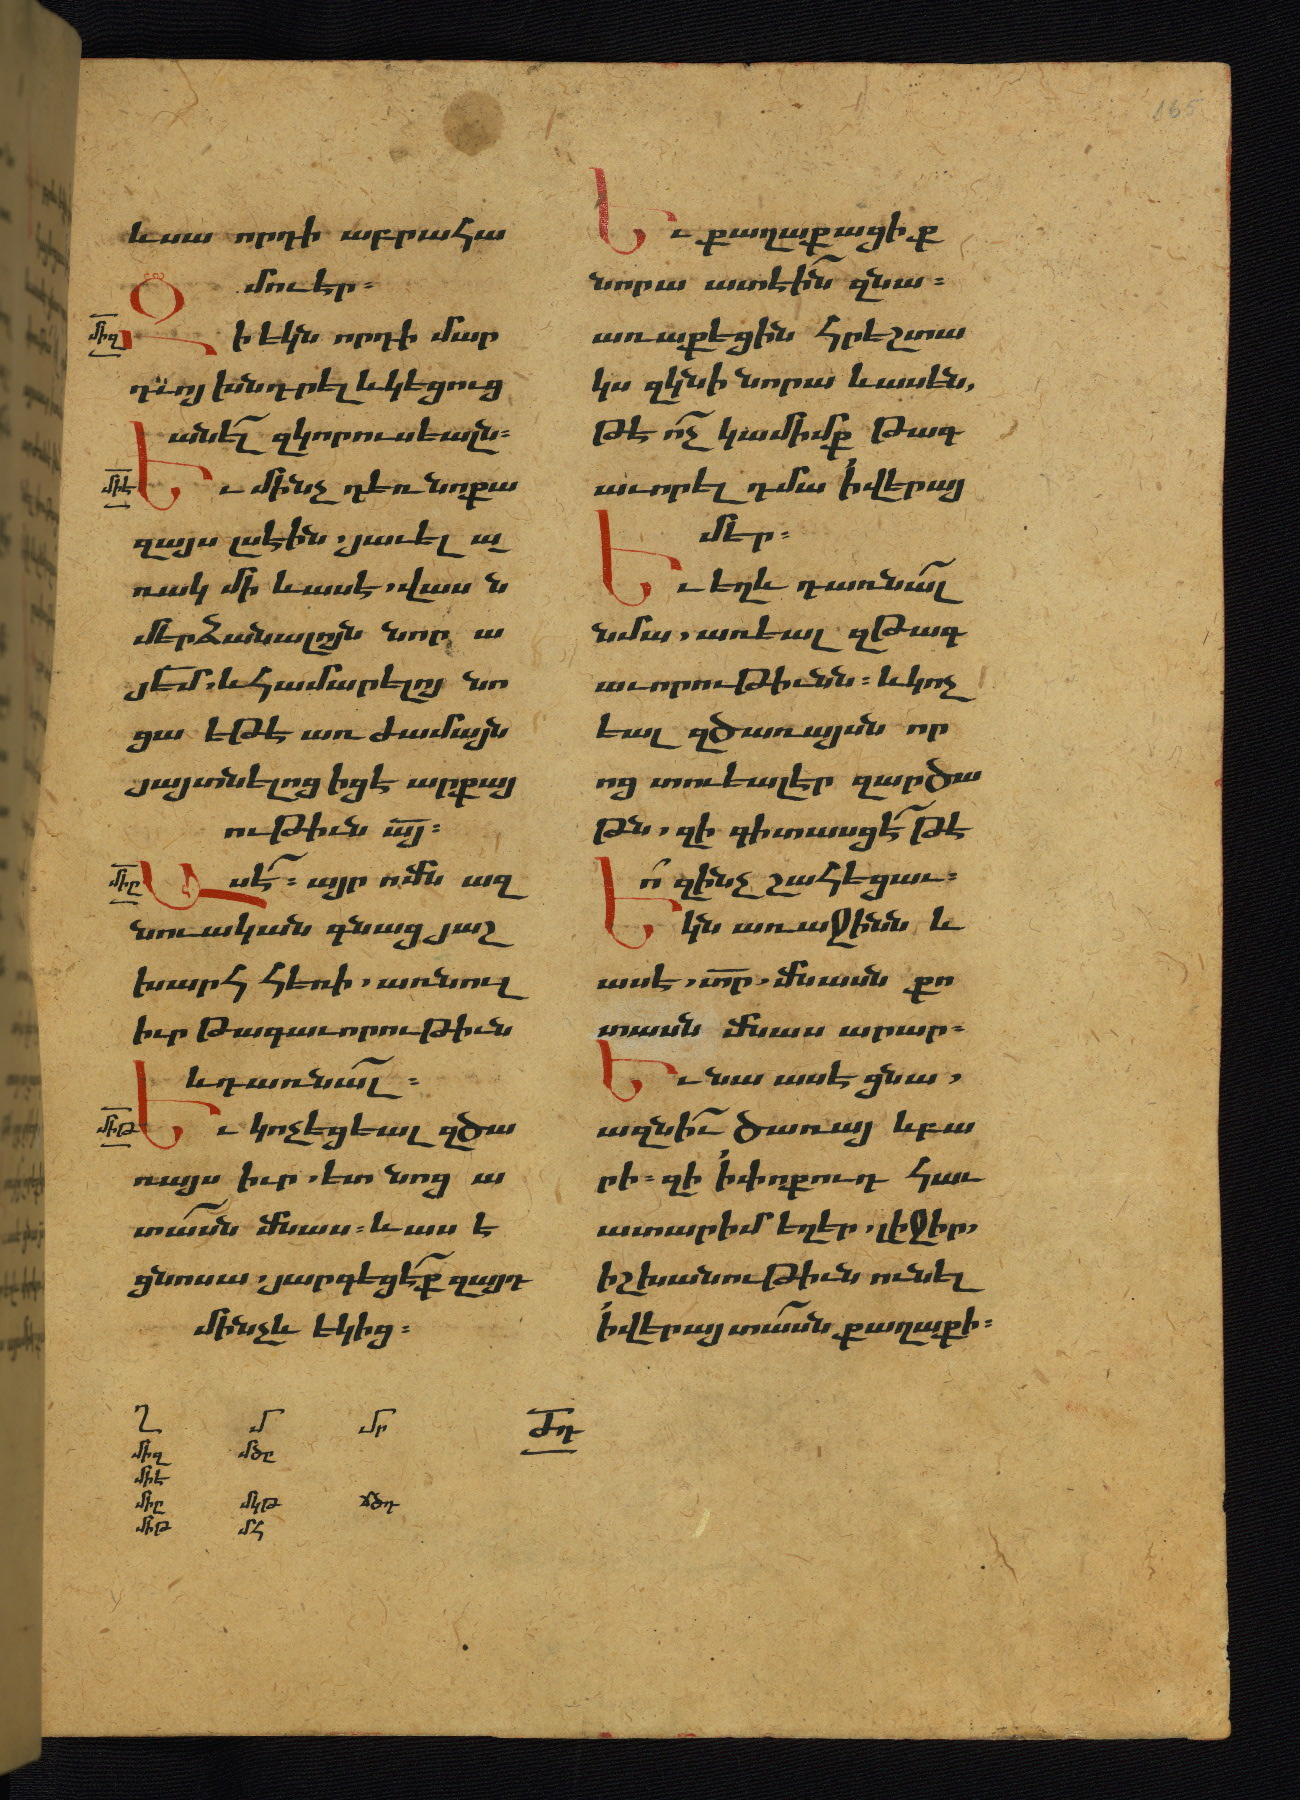 ևսա որդի աբրահա
մու էր։
միզ
Զի եկն որդի մար
դոյ խնդրել ևկեցուց
անել զկորուսեալն։
միէ
Եւ մինչ դեռ նոքա
զայս լսէին, յաւել ա
ռակ մի ևասէ, վաս ն
մերձանալոյն նոր ա
յեմ, ևհամարելոյ նո
ցա եթէ առ ժամայն
յայտնելոց իցէ արքայ
ութիւն այ։
միը
Ասէ։ այր ոմն ազ
նուական գնաց յաշ
խարհ հեռի, առնուլ
իւր թագաւորութիւն
ևդառնալ։
միթ
Եւ կոչեցեալ զծա
ռայս իւր, ետ նոց ա
տասն մնաս։ևաս է
ցնոսա, յարգեցէք զայդ
մինչև եկից։
Եւ քաղաքացիք
նորա ատէին զնա։
առաքեցին հրեշտա
կս զկնի նորա ևասեն,
թէ ոչ կամիմք թագ
աւորել դմա իվերայ
մեր։
Եւ եղև դառնալ
նմա, առեալ զթագ
աւորութիւնն։ևկոչ
եալ զծառայսն որ
ոց տուեալէր զարծա
թն, զի գիտասցէ թէ
ո զինչ շահեցաւ։
Եկն առաջինն և
ասէ, տր, մնասն քո
տասն մնաս արար։
Եւ նա ասէ ցնա,
ազնիւ ծառայ ևբա
րի։զի իփոքուդ հաւ
ատարիմ եղեր, լիջիր,
իշխանութիւն ունել
իվերայ տասն քաղաքի։
Ղ մ մր ժդ
միզ մծը
միէ
միը մկթ ճծդ
միթ մհ